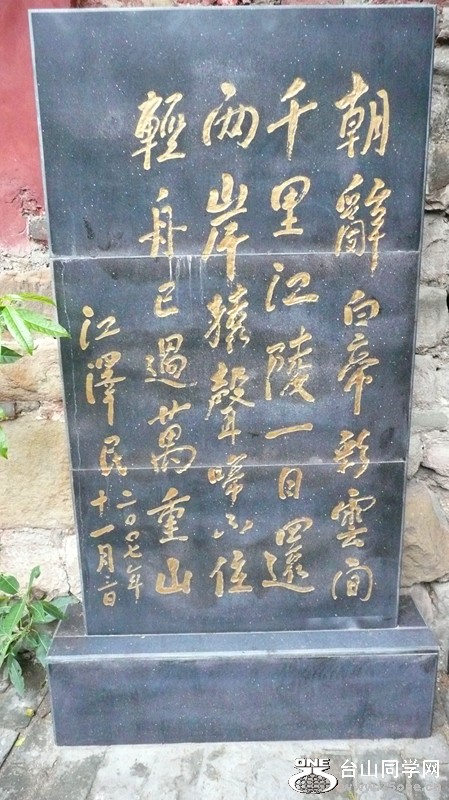 朝辭白帝彩雲间
千里江陵一日還
两岸猿聲啼不住
輕舟已過萬重山
江澤民
二〇〇七年
十一月
ONE
台山同学网